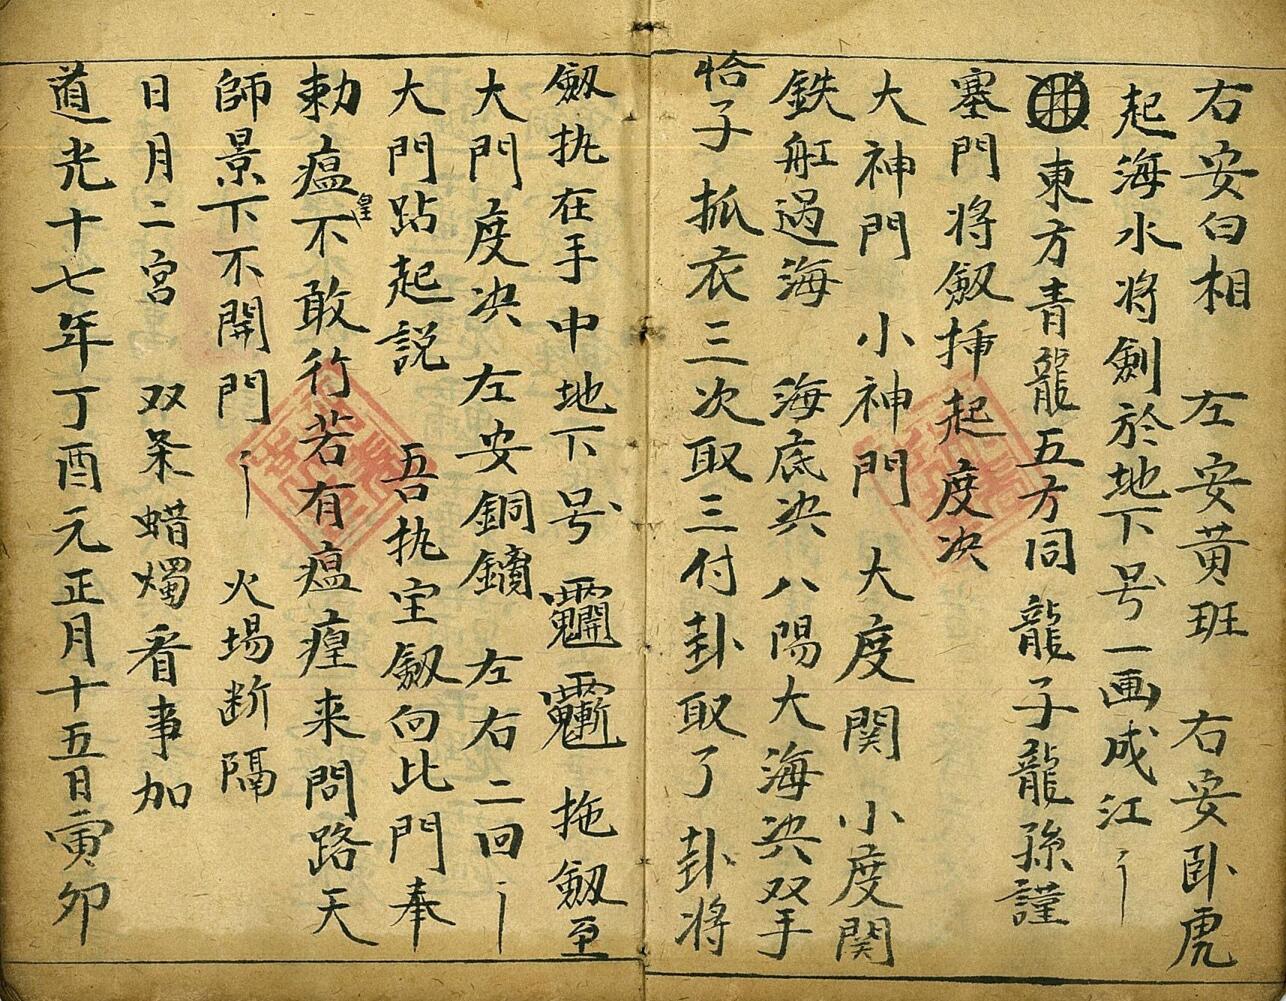 右安白相 左安黄班 右安卧虎
起海水将劍於地下号一画成江
井東方青龍五方同龍子龍孫謹
塞門将劔揷起度决
大神門 小神門 大度関 小度関
鉄舡過海 海底决 八陽大海决双手
恰子抓衣三次取三付卦取了卦将
劔执在手中地下号 拖劔至
大門度决左安銅鐀左右二回
大門跕起説 吾执宝劔向此門奉
勅瘟皇不敢行若有瘟瘽来問路天
師景下不開門 火場断隔
日月二宮 双条蜡燭看事加
道光十七年丁酉元正月十五日寅卯